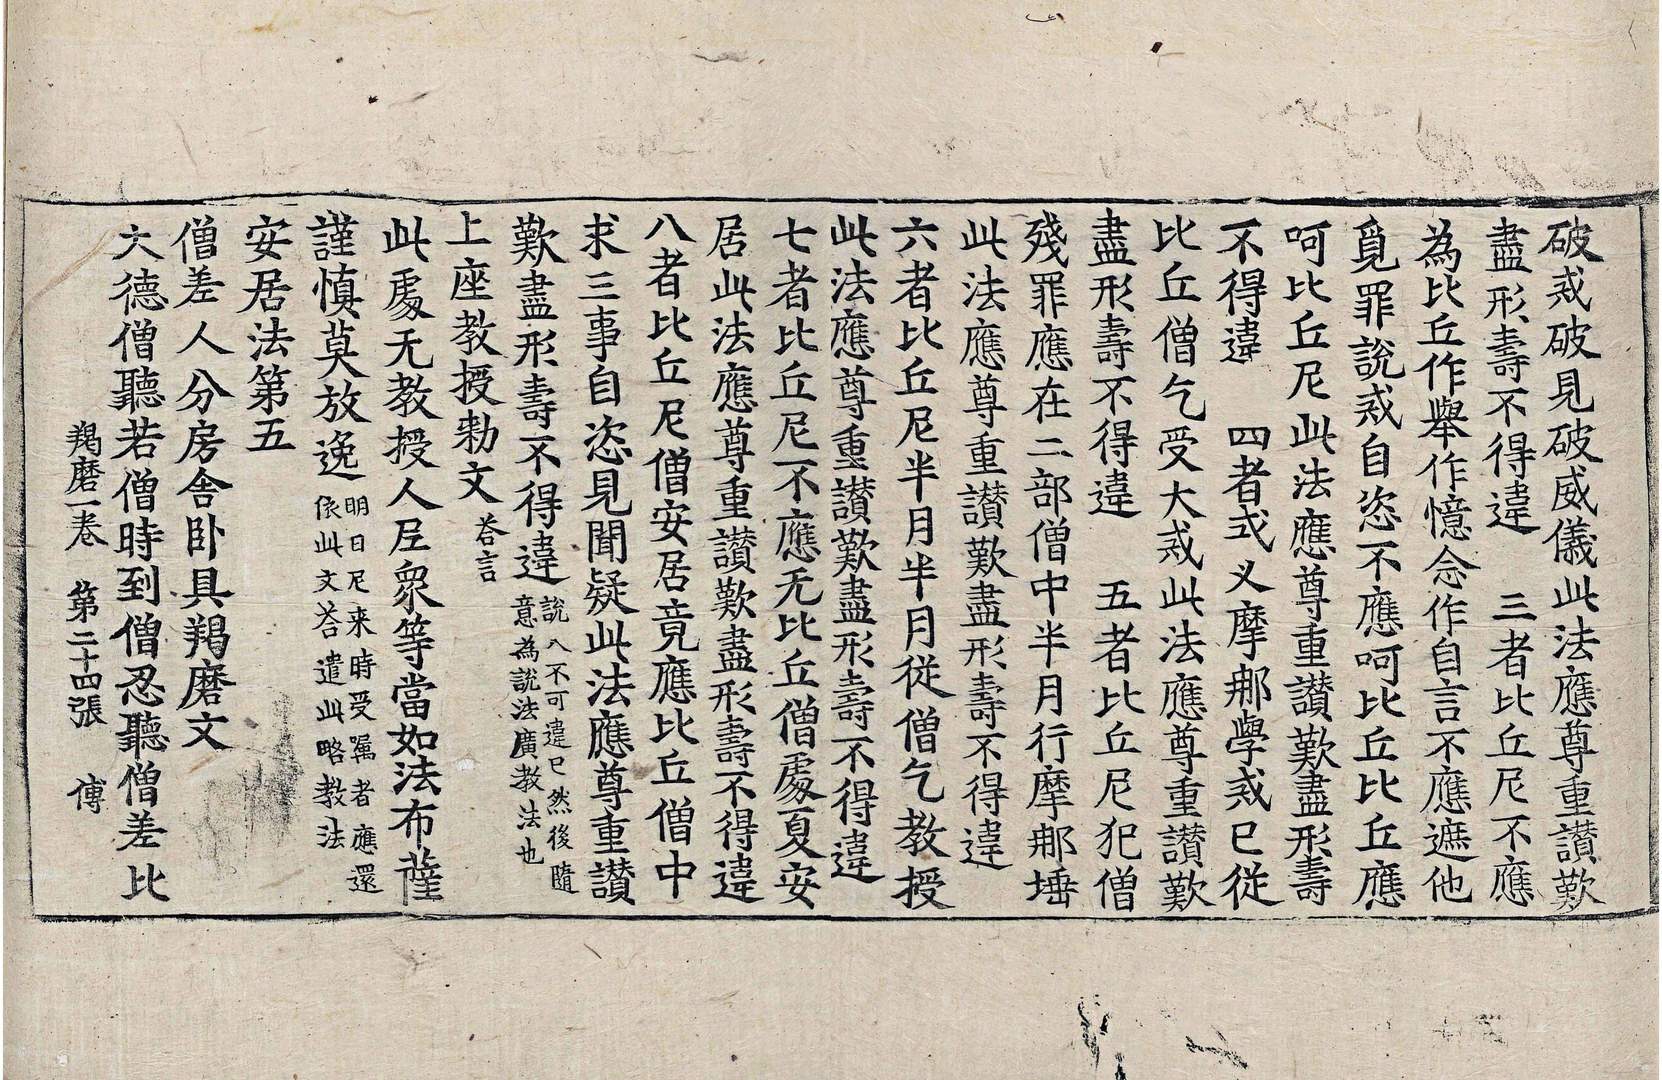 破戒破見破威儀此法應尊重讃歎
盡形壽不得違　三者比丘尼不應
為比丘作舉作憶念作自言不應遮他
覓罪說戒自恣不應呵比丘比丘應
呵比丘尼此法應尊重讃歎盡形壽
不得違　四者式叉摩那學戒已從
比丘僧乞受大戒此法應尊重讃歎
盡形壽不得違　五者比丘尼犯僧
殘罪應在二部僧中半月行摩那埵
此法應尊重讃歎盡形壽不得違
六者比丘尼半月半月從僧乞教授
此法應尊重讃歎盡形壽不得違
七者比丘尼不應无比丘僧處夏安
居此法應尊重讃歎盡形壽不得違
八者比丘尼僧安居竟應比丘僧中
求三事自恣見聞疑此法應尊重讃
歎盡形壽不得違說八不可違已然後隨
意為說法廣教法也
上座教授勑文荅言
此處无教授人尼眾等當如法布薩
謹慎莫放逸明日尼來時受囑者應還
依此文荅遣此略教法
安居法第五
僧差人分房舍卧具羯磨文
大德僧聽若僧時到僧忍聽僧差比
羯磨一卷　第二十四張　傳